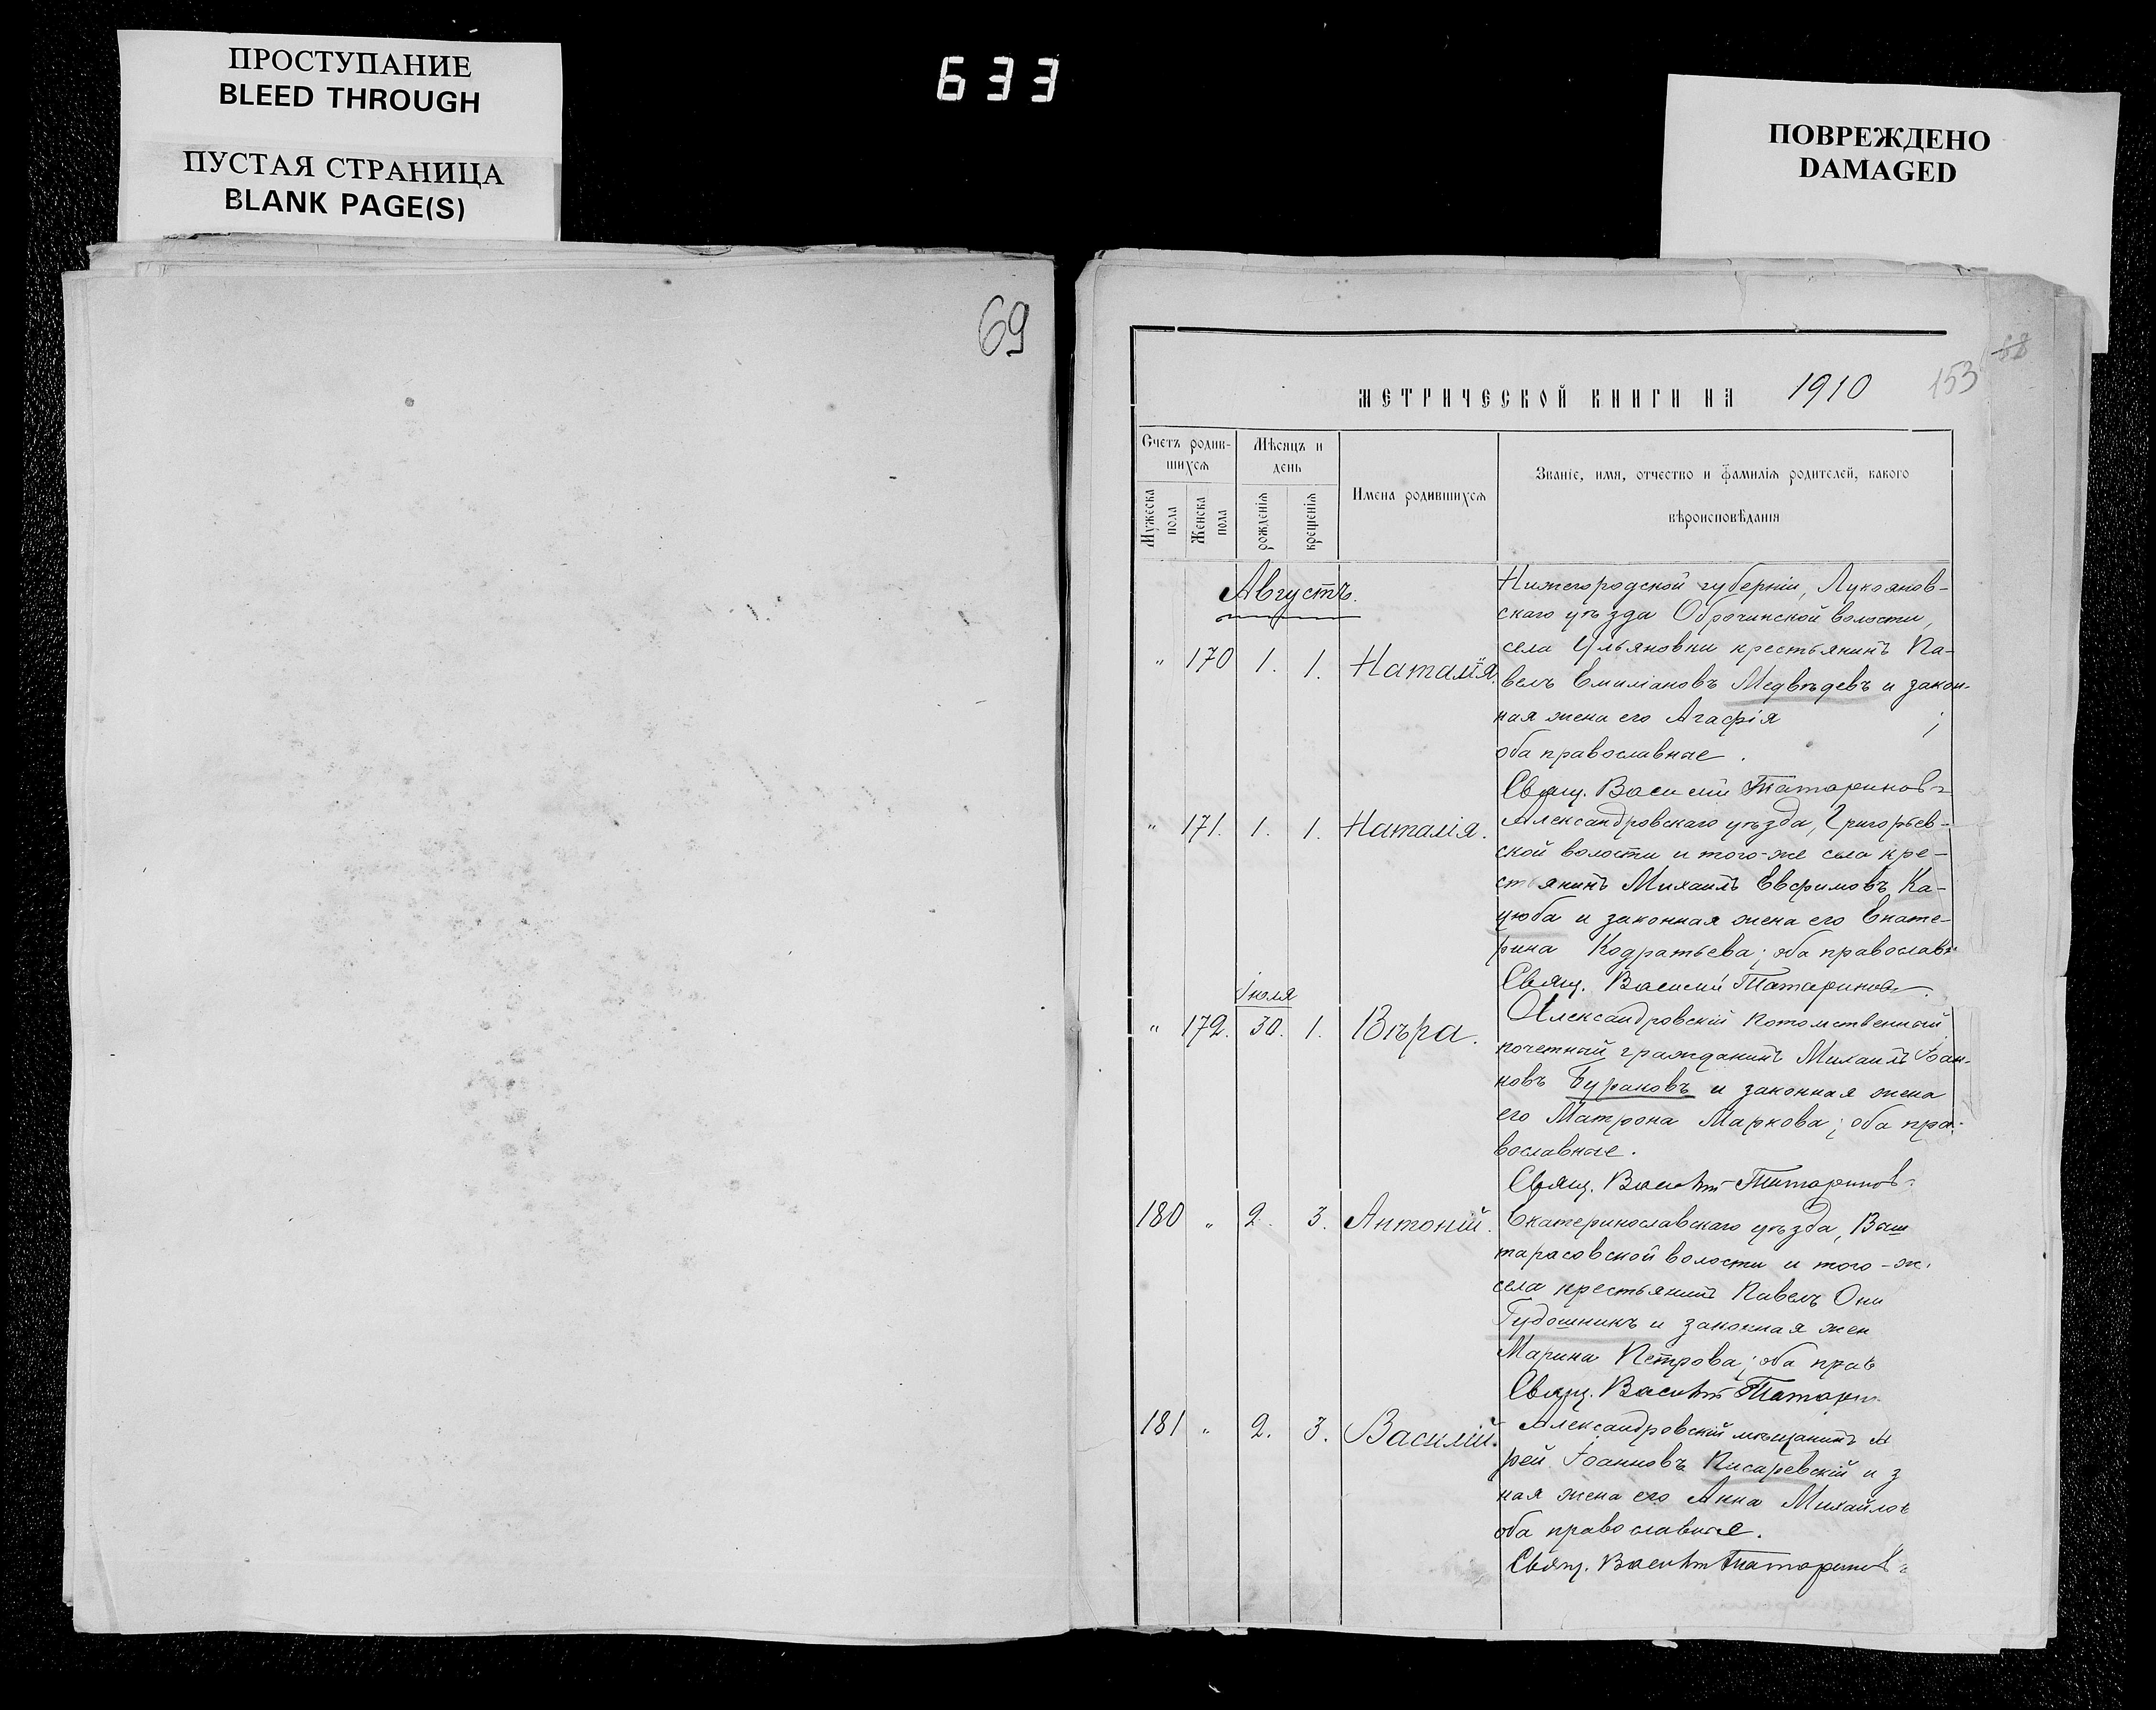 ПРОСТУПАНИЕ
BLEED THROUGH
ПУСТАЯ СТРАНИЦА
BLANK PAGE(S)
633
ПОВРЕЖДЕНО
DAMAGED
69
68
153
МЕТРИЧЕСКОЙ КНИГИ НА 1910
Счетъ родив-
шихся
Мѣсяцъ и
день
Имена родившихся
Званіе, имя, отчество и фамилія родителей, какого
вѣроисповѣданія
Мужеска
пола
Женска
пола
рожденія
крещенія
Августъ.
Нижегородской губерніи, Лукоянов-
скаго уѣзда Оброчинской волости,
села Ульяновки крестьянинъ Па-
" 170 1. 1. Наталія.
велъ Емиліановъ Медвѣдевъ и закон-
ная жена его Агафія ;
оба православные.
Свящ. Василій Татариновъ
" 171. 1. 1. Наталія.
Александровскаго уѣзда, Григорьев-
ской волости и того-же села кре-
стьянинъ Михаилъ Евфимовъ Ка-
цюба и законная жена его Екате-
рина Кодратьева; оба православн
Свящ. Василій Татариновъ
Іюля
" 172. 30. 1. Вѣра.
Александровскій потомственный
почетный гражданинъ Михаилъ Іоан-
новъ Бураковъ и законная жена
его Матрона Маркова; оба пра-
вославные.
Свящ. Василій Татариновъ
180 " 2. 3. Антоній.
Екатеринославскаго уѣзда, Баш
тарасовской волости и того-ж
села крестьянинъ Павелъ Они
Гудошникъ и законная жен
Марина Петрова; оба прав
Свящ. Василій Татарин
181 " 2. 3. Василій.
Александровскій мѣщанинъ А
рей Іоанновъ Писаревскій и з
ная жена его Анна Михайлов
оба православные.
Свящ. Василій Татариновъ